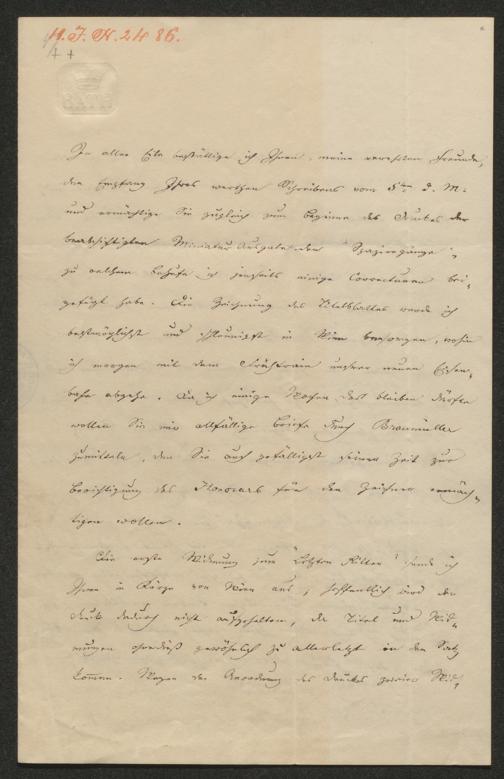 H. I. N. 2486.
BATH
In aller Eile bestättige ich Ihnen, meine verehrten Freunde,
den Empfang Ihres werthen Schreibens vom 5ten d. M.
und ermächtige Sie zugleich zum Beginne des Druckes der
beabsichtigten Miniatur Ausgabe der "Spaziergänge",
zu welchem Behufe ich jenseits einige Correcturen bei-
gefügt habe. Die Zeichnung des Titelblattes werde ich
bestmöglichst und schleunigst in Wien besorgen, wohin
ich morgen mit dem Frühtrain unsrer neuen Eisen-
bahn abgehe. Da ich einige Wochen dort bleiben dürfte
wollen Sie mir allfällige Briefe durch Braumüller
zumitteln, den Sie auch gefälligst seiner Zeit zur
Berichtigung des Honorars für den Zeichner ermäch-
tigen wollen.
Die erste Widmung zum "Letzten Ritter" sende ich
Ihnen in Kürze von Wien aus; hoffentlich wird der
Druck dadurch nicht aufgehalten, da Titel und Wid-
mungen ohnedieß gewöhnlich zu allerletzt in den Satz
kommen. Wegen der Anordnung des Druckes dieser Wid-